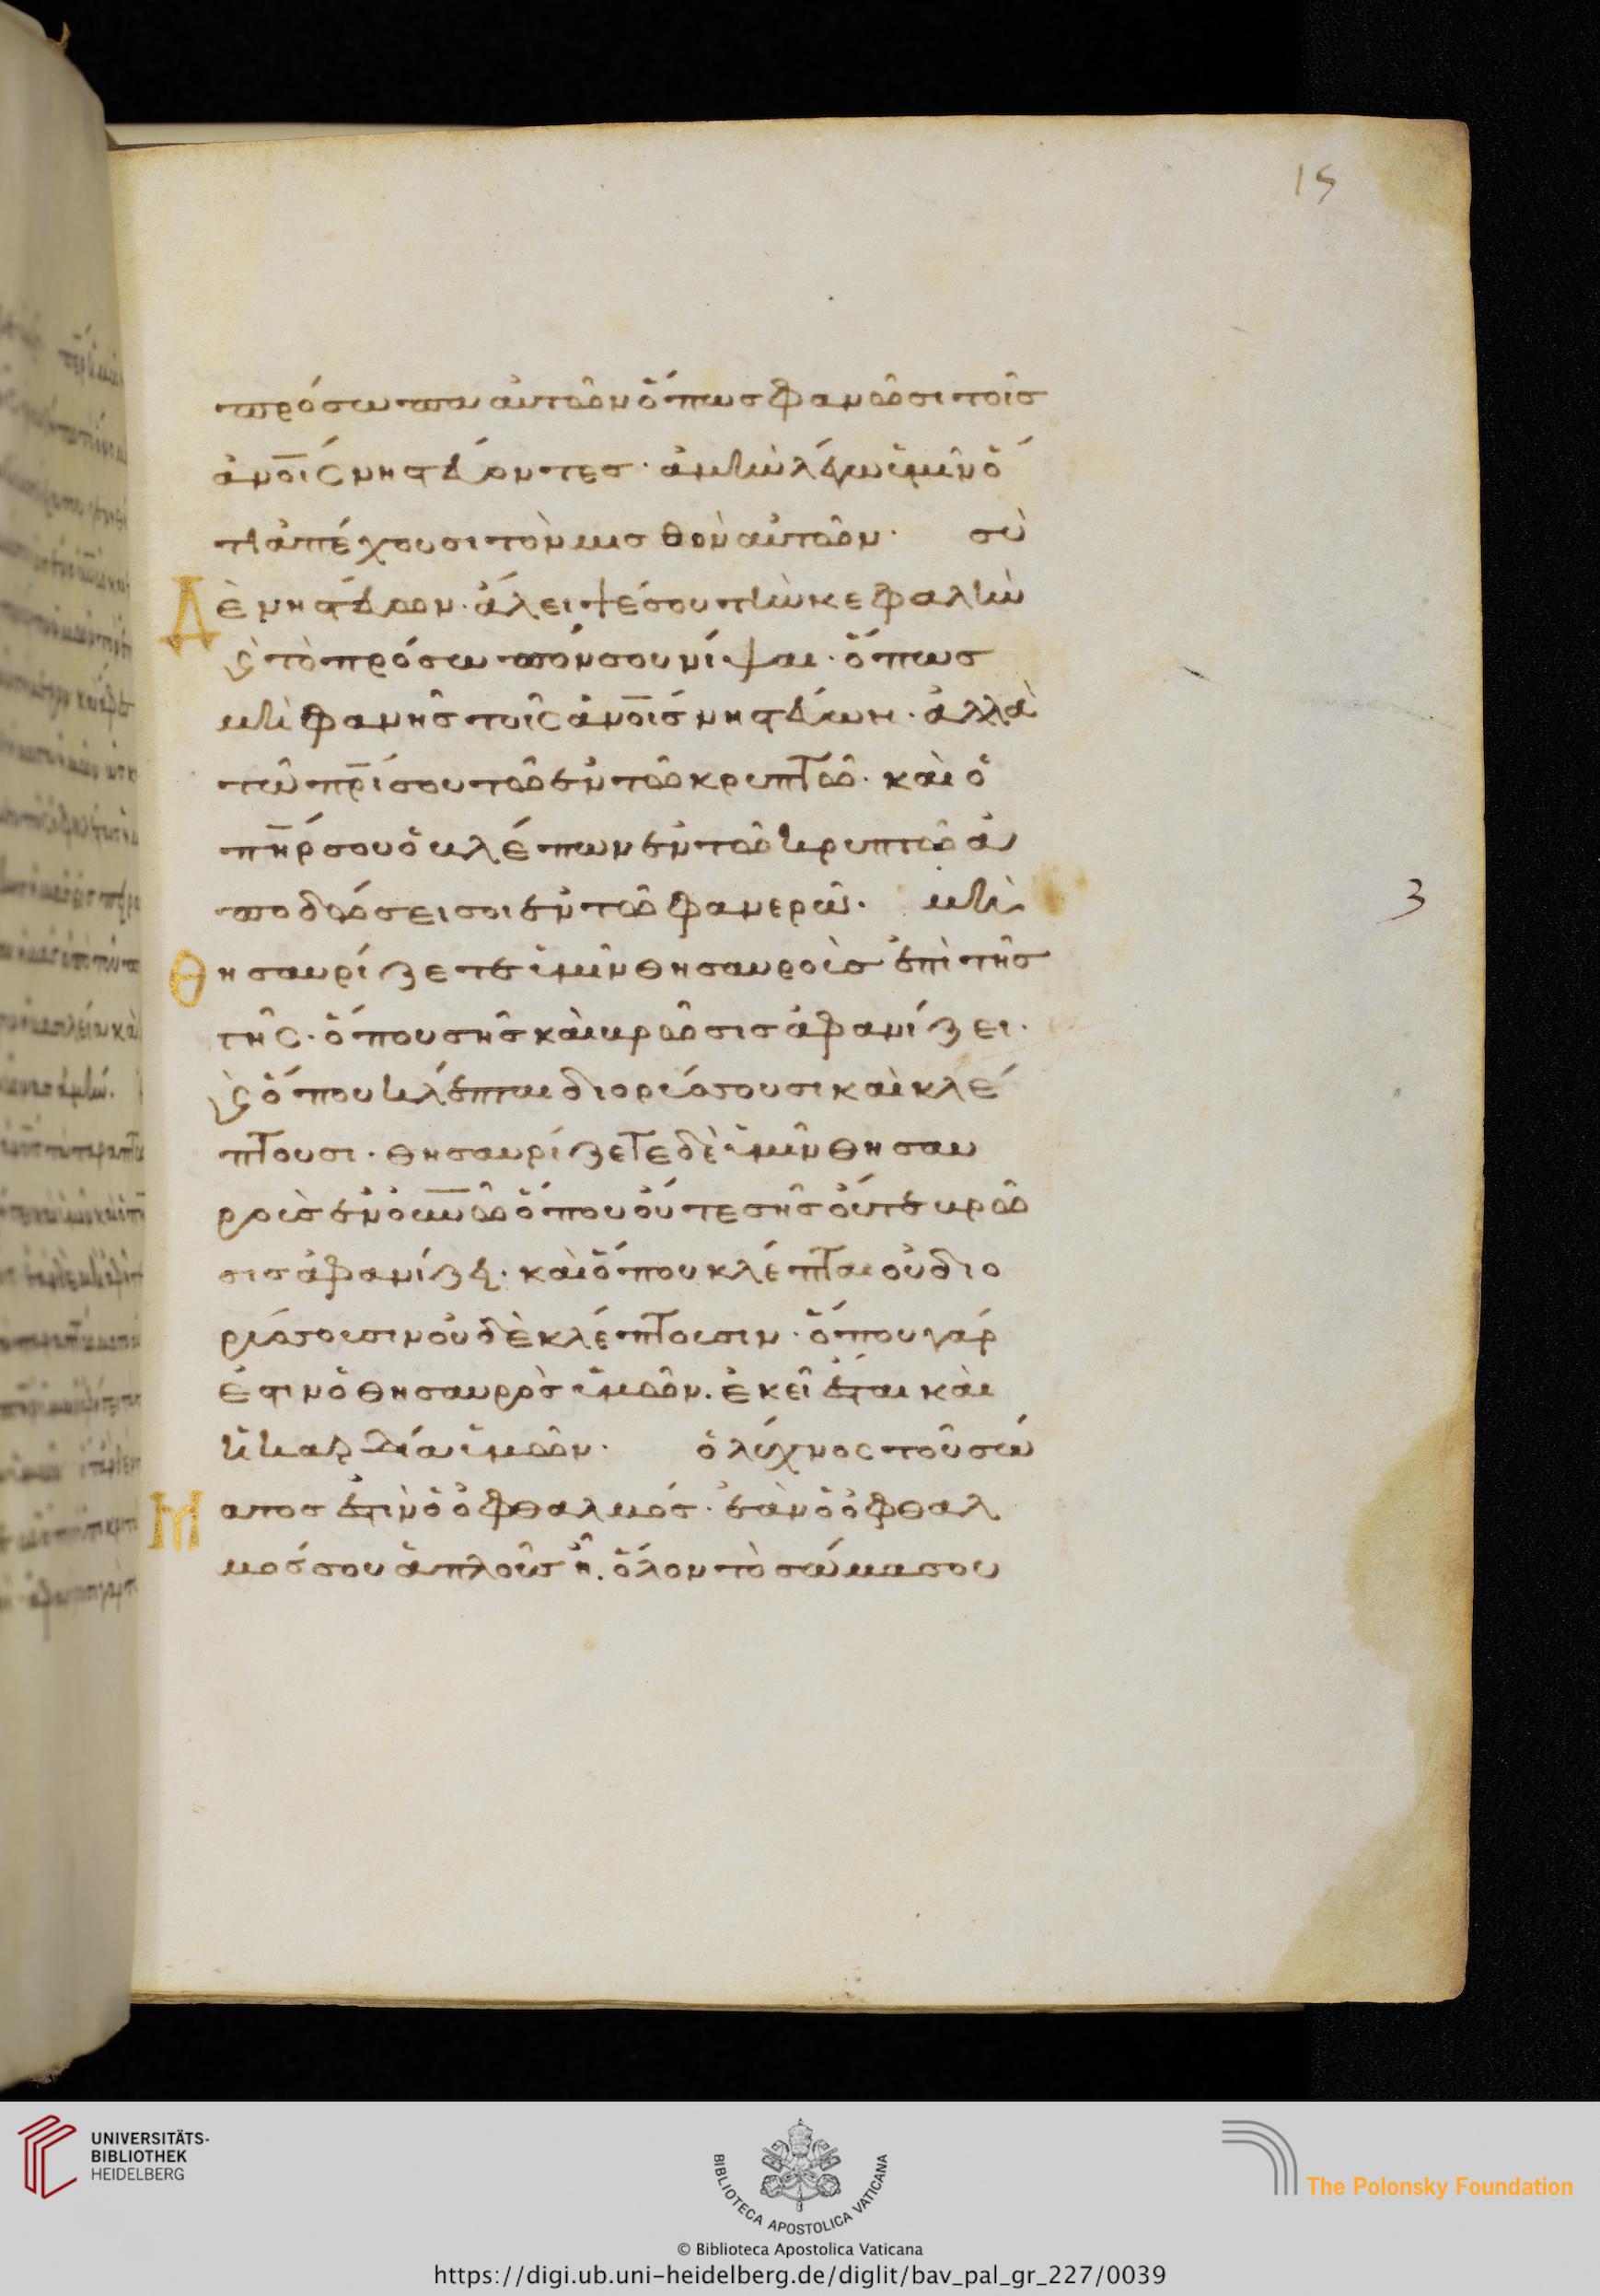 15
πρόσωπα αὐτῶν ὅπως φανῶσι τοῖς
ἀνοῖς νηστεύοντες · ἀμὴν λέγω ὑμῖν ὅ
τι ἀπέχουσι τὸν μισθὸν αὐτῶν · σὺ
Δὲ νηστεύων · ἄλειψέ σου τὴν κεφαλὴν
ϗ τὸ πρόσωπόν σου νίψαι · ὅπως
μὴ φανῆς τοῖς ἀνοῖς νηστεύων · ἀλλὰ
τῶ πρί σου τῶ ἐν τῶ κρυπτῶ · καὶ ὁ
πηρ σου ὁ βλέπων ἐν τῶ κρυπτῶ ἀ
ποδώσει σοι ἐν τῶ φανερῶ · μὴ
3
Θησαυρίζετε ὑμῖν θησαυροὺς ἐπὶ τῆς
γῆς · ὅπου σὴς καὶ βρῶσις ἀφανίζει ·
ϗ ὅπου κλέπται διορύσσουσι καὶ κλέ
πτουσι · θησαυρίζετε δὲ ὑμῖν θησαυ
ροὺς ἐν οὐνῶ ὅπου οὔτε σὴς οὔτε βρῶ
σις ἀφανίζει · καὶ ὅπου κλέπται οὐ διο
ρύσσουσιν οὐδὲ κλέπτουσιν · ὅπου γάρ
ἐστιν ὁ θησαυρὸς ὑμῶν · ἐκεῖ ἔσται καὶ
ἡ καρδία ὑμῶν · ὁ λύχνος τοῦ σώ
Ματος ἐστὶν ὁ ὀφθαλμός · ἐὰν ὁ ὀφθαλ
μός σου ἁπλοῦς ἦ · ὅλον τὸ σῶμα σου
UNIVERSITÄTS-
BIBLIOTHEK
HEIDELBERG
BIBLIOTECA APOSTOLICA VATICANA
The Polonsky Foundation
© Biblioteca Apostolica Vaticana
https://digi.ub.uni-heidelberg.de/diglit/bav_pal_gr_227/0039